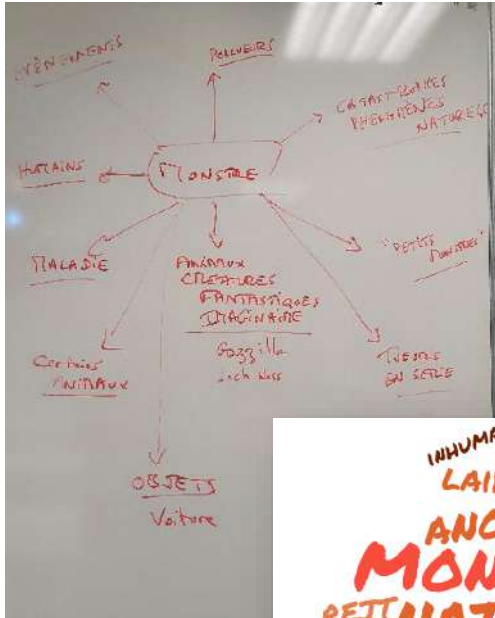 ÉVÈNEMENTS
POLLUEURS
CATASTROPHES
PHÉNOMÈNES
NATURELS
HUMAINS
MONSTRE
MALADIE
ANIMAUX
CRÉATURES
FANTASTIQUES
IMAGINAIRE
Gozzilla
Loch Ness
"PETITS
MONSTRES"
Certains
ANIMAUX
TUEURS
EN SÉRIE
OBJETS
Voiture
INHUMA
LAI
MON
PETIT